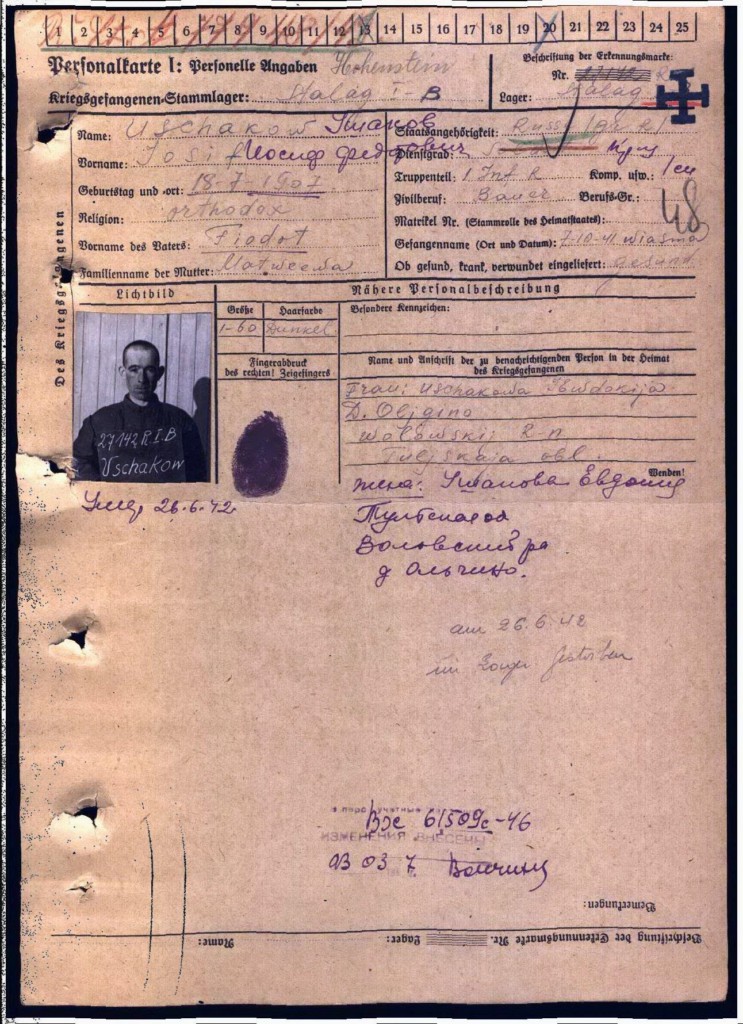 1 2 3 4 5 6 7 8 9 10 11 12 13 14 15 16 17 18 19 20 21 22 23 24 25
Personalkarte I: Personelle Angaben Hohenstein
Kriegsgefangenen-Stammlager: Stalag I-B
Beschriftung der Erkennungsmarke:
Nr.
Lager: Stalag
Des Kriegsgefangenen
Name: Uschakow Ушаков
Vorname: Iosif Иосиф Федотович
Geburtstag und -ort: 18-7-1907
Religion: orthodox
Vorname des Vaters: Fiodot
Familienname der Mutter: Matweewa
Staatsangehörigkeit:
Dienstgrad:
Truppenteil: 1 Inf R Komp. usw.:
Zivilberuf: Bauer Berufs-Gr.:
48
Matrikel Nr. (Stammrolle des Heimatstaates):
Gefangennahme (Ort und Datum): 7-10-41 Wiasma
Ob gesund, krank, verwundet eingeliefert: gesund
Lichtbild
Nähere Personalbeschreibung
Größe Haarfarbe
1-60 Dunkel
Fingerabdruck
des rechten! Zeigefingers
Besondere Kennzeichen:
Name und Anschrift der zu benachrichtigenden Person in der Heimat
des Kriegsgefangenen
Frau: Uschakowa Ewdokija
D. Oljgino
Wolowskij R-n
Tuljskaia obl.
Wenden!
27142 R I.B
Uschakow
Умер 26.6.42
жена: Ушакова Евдокия
Воловский р
д Ольчино.
am 26.6.42
im Lager gestorben
Вх 61509с-46
ИЗМЕНЕНИЯ ВНЕСЕНЫ
03 03 7
Bemerkungen:
Beschriftung der Erkennungsmarke Nr. Lager: Name: